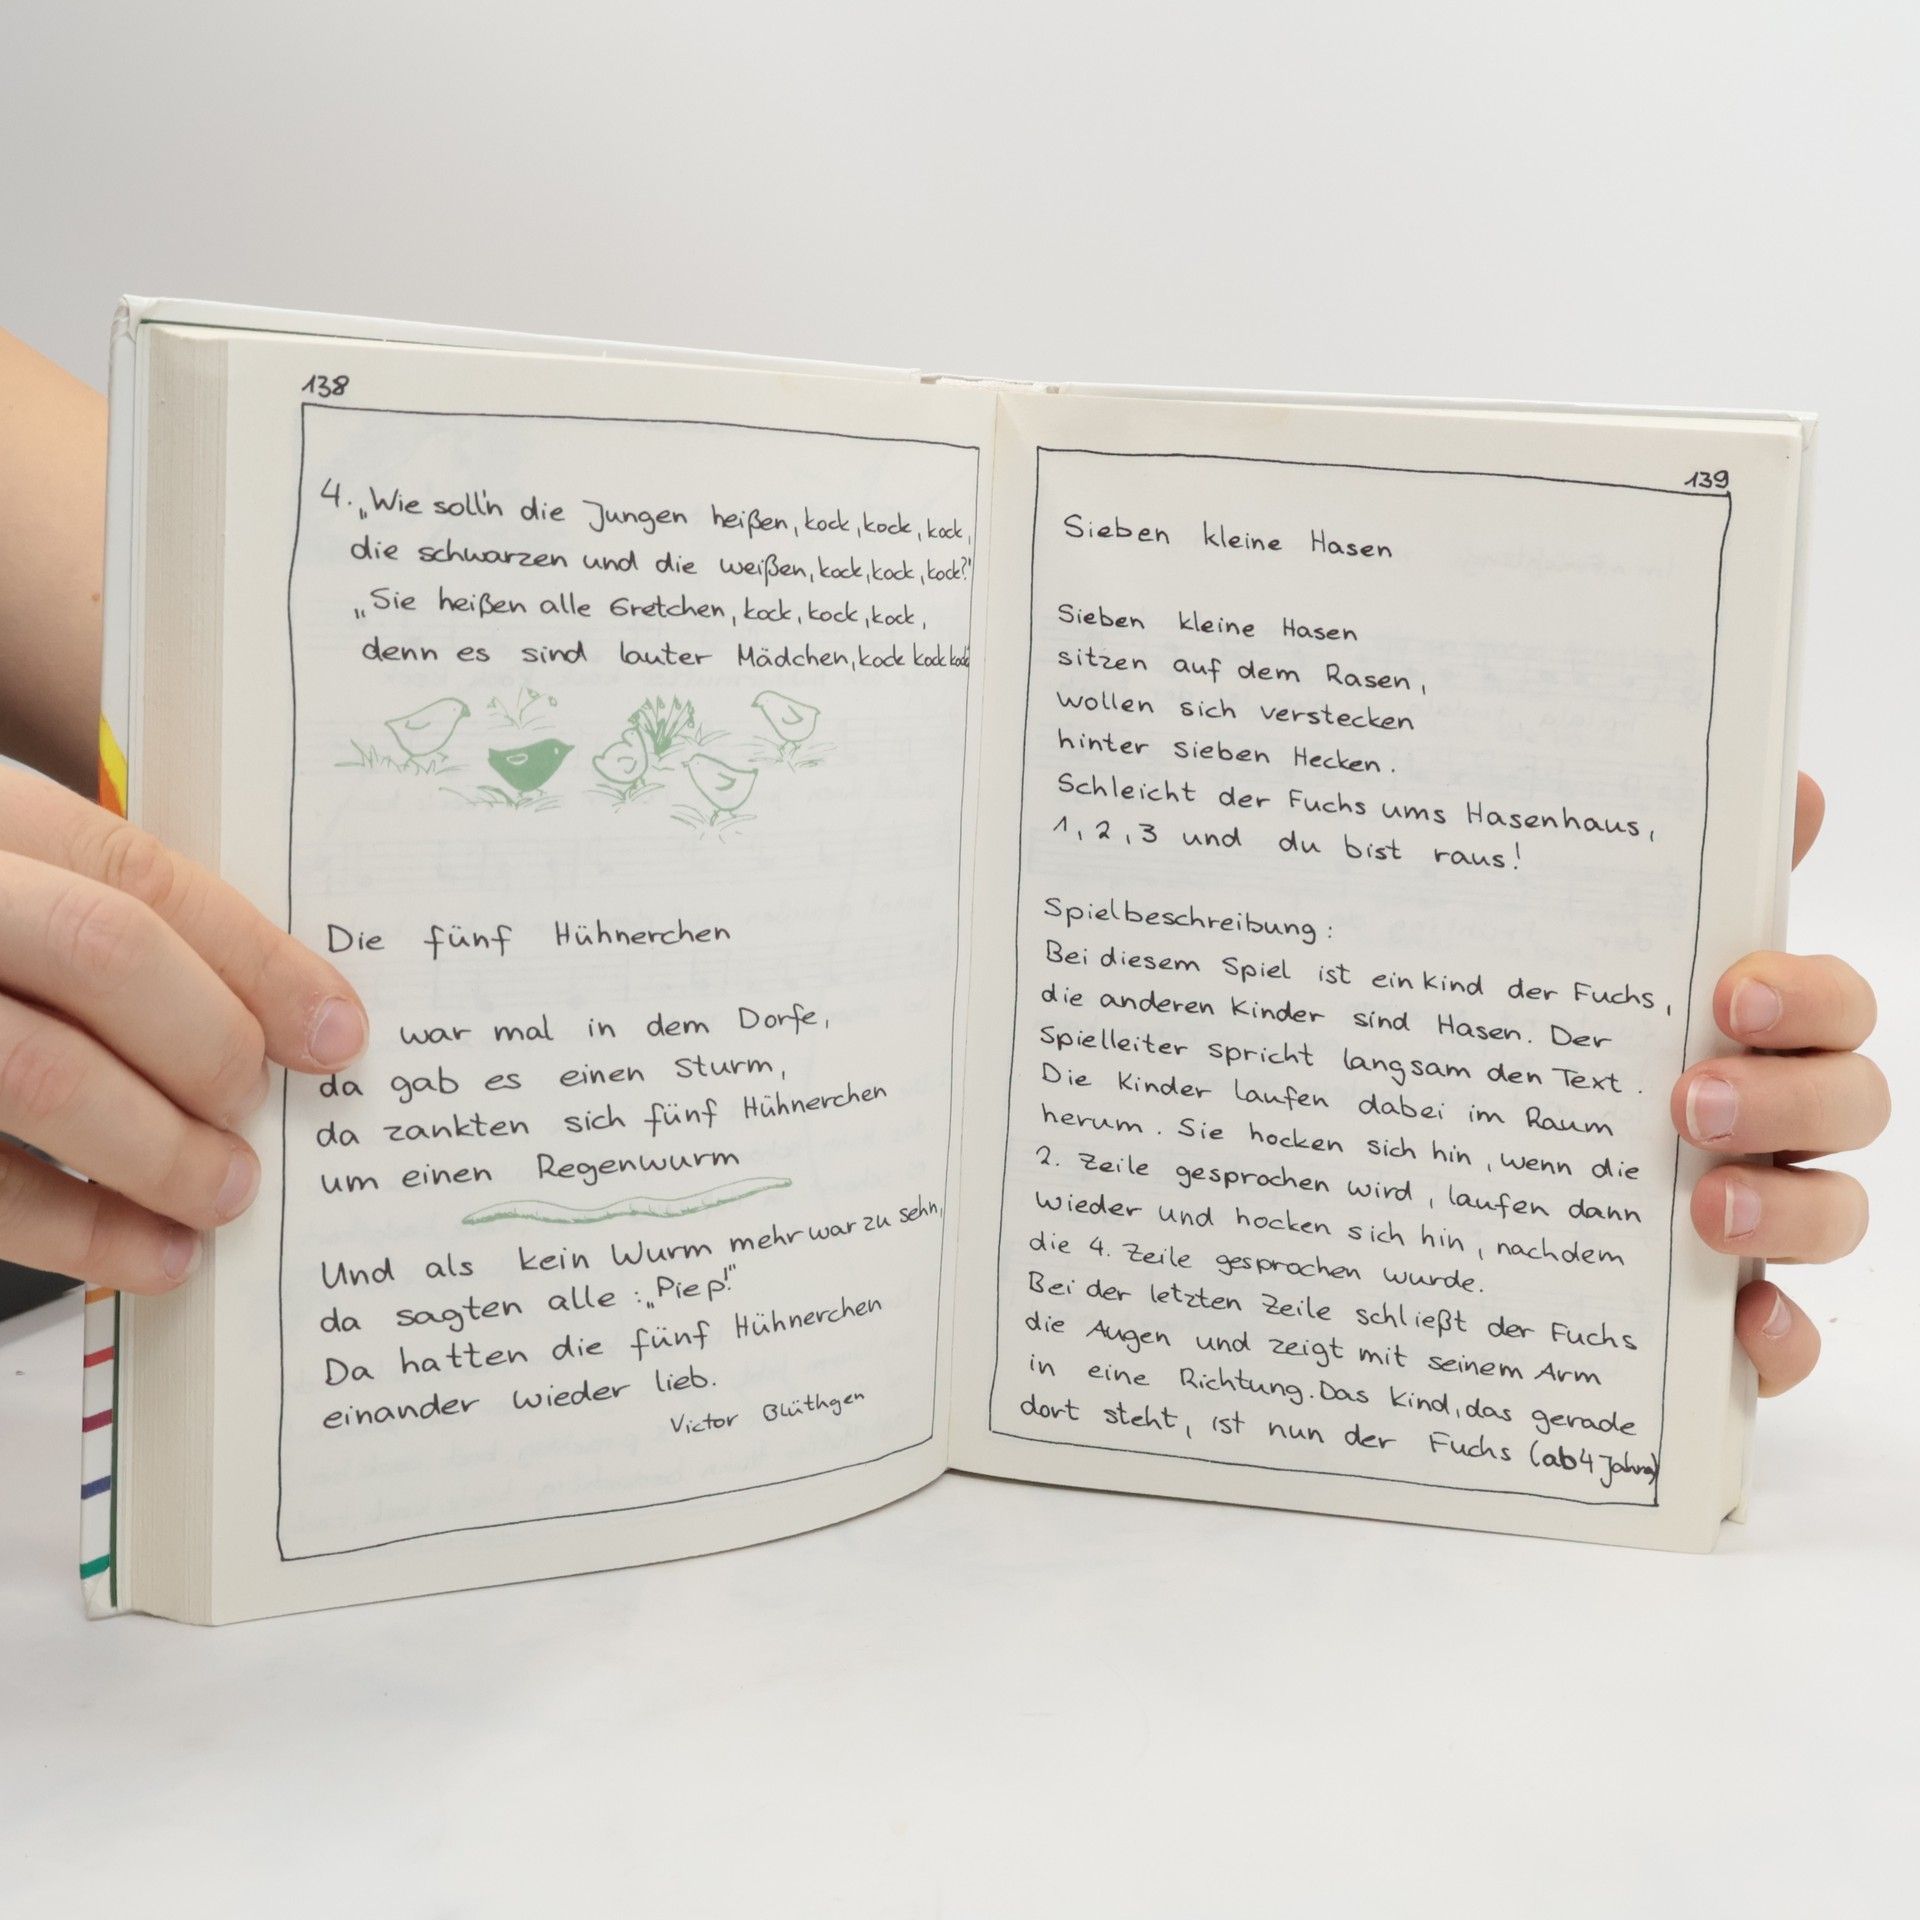 138
4. „Wie soll'n die Jungen heißen, kock, kock, kock,
die schwarzen und die weißen, kock, kock, kock?"
„Sie heißen alle Gretchen, kock, kock, kock,
denn es sind lauter Mädchen, kock kock kock"
Die fünf Hühnerchen
war mal in dem Dorfe,
da gab es einen Sturm,
da zankten sich fünf Hühnerchen
um einen Regenwurm
Und als kein Wurm mehr war zu sehn,
da sagten alle: „Piep!"
Da hatten die fünf Hühnerchen
einander wieder lieb.
Victor Blüthgen
139
Sieben kleine Hasen
Sieben kleine Hasen
sitzen auf dem Rasen,
wollen sich verstecken
hinter sieben Hecken.
Schleicht der Fuchs ums Hasenhaus,
1, 2, 3 und du bist raus!
Spielbeschreibung:
Bei diesem Spiel ist ein Kind der Fuchs,
die anderen Kinder sind Hasen. Der
Spielleiter spricht langsam den Text.
Die Kinder laufen dabei im Raum
herum. Sie hocken sich hin, wenn die
2. Zeile gesprochen wird, laufen dann
wieder und hocken sich hin, nachdem
die 4. Zeile gesprochen wurde.
Bei der letzten Zeile schließt der Fuchs
die Augen und zeigt mit seinem Arm
in eine Richtung. Das Kind, das gerade
dort steht, ist nun der Fuchs (ab 4 Jahre)